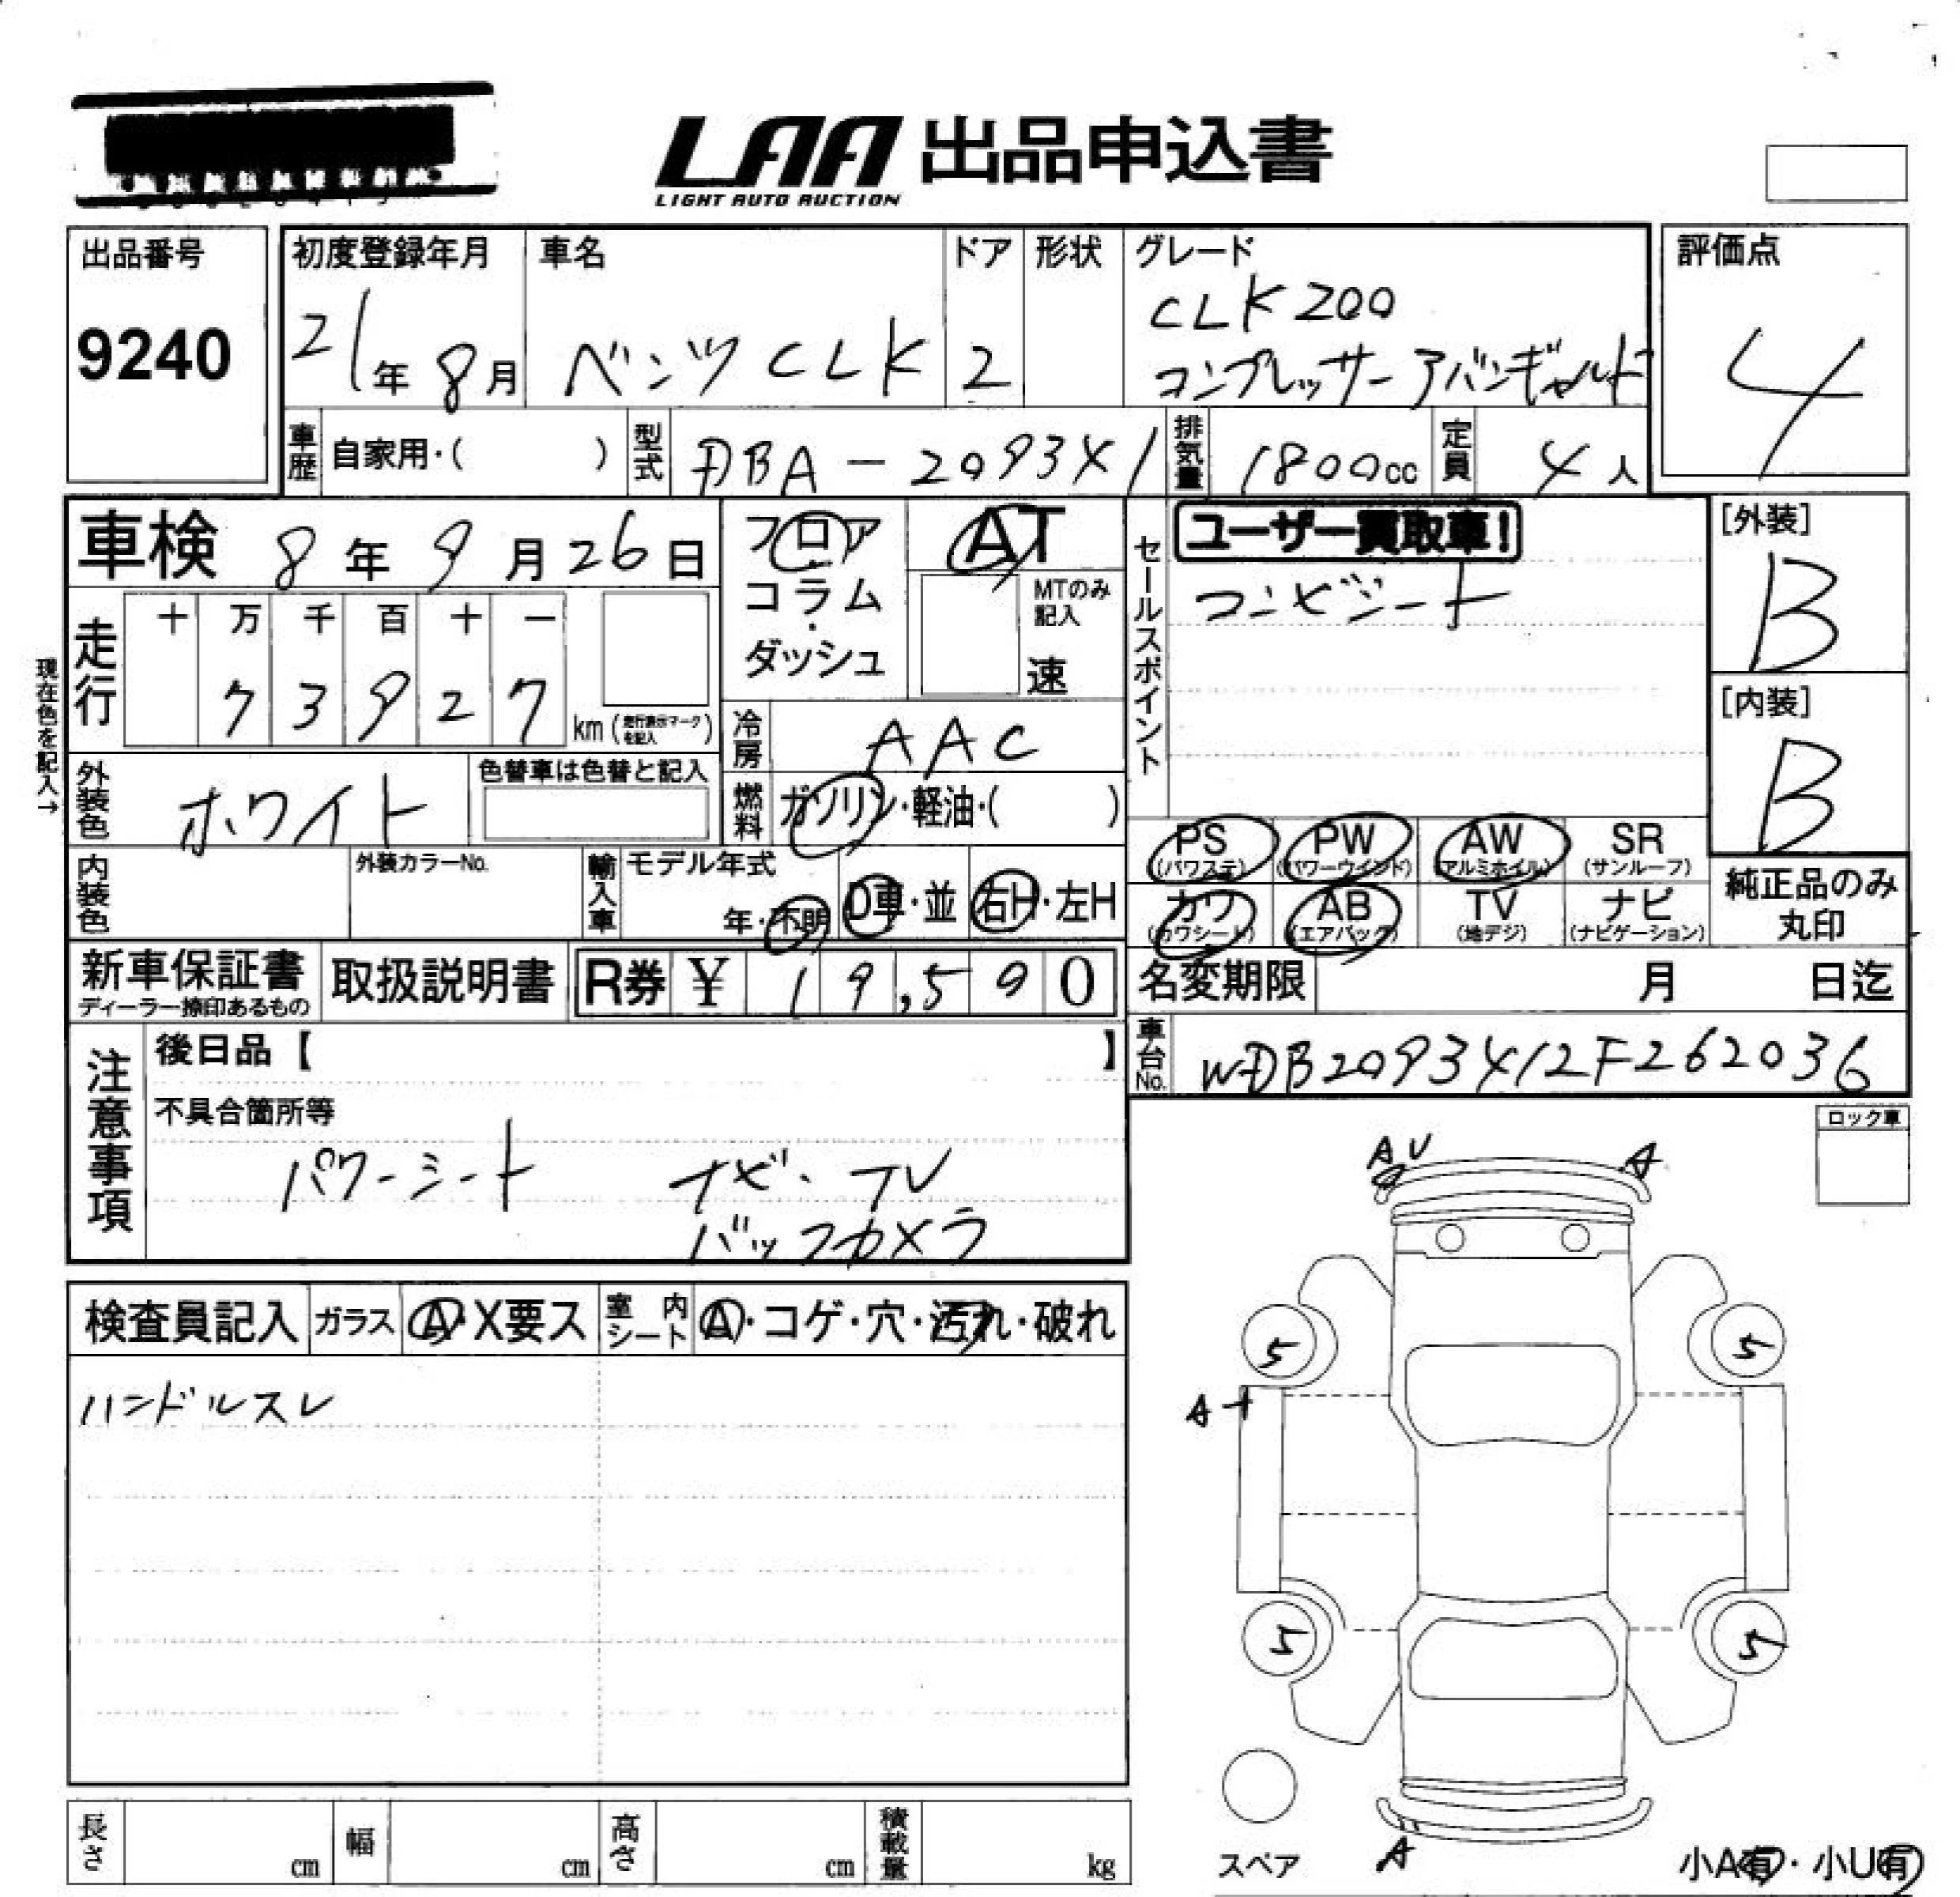 LAA 出品申込書
LIGHT AUTO AUCTION
出品番号
9240
初度登録年月
21年 8月
車名
ベンツ CLK
ドア
2
形状
グレード
CLK200
コンプレッサーアバンギャルド
評価点
4
車歴 自家用・( )
型式 DBA-209341
排気量 1800cc
定員 4人
車検 8年 9月 26日
フロア
コラム
・
ダッシュ
AT
MTのみ
記入
速
セールスポイント
ユーザー買取車!
コンビシート
[外装]
B
[内装]
B
現在色を記入→
走行
十 万 千 百 十 一
7 3 9 2 7 km (走行表示マークを記入)
冷房 AAC
外装色 ホワイト
色替車は色替と記入
燃料 ガソリン・軽油・( )
PS (パワステ)
PW (パワーウインド)
AW (アルミホイル)
SR (サンルーフ)
カワ (カワシート)
AB (エアバック)
TV (地デジ)
ナビ (ナビゲーション)
純正品のみ
丸印
内装色
外装カラーNo.
輸入車
モデル年式
年・不明
D車・並
右H・左H
新車保証書
ディーラー捺印あるもの
取扱説明書
R券 ¥ 19,590
名変期限 月 日迄
車台No. WDB2093412F262036
注意事項
後日品【 】
不具合箇所等
パワーシート ナビ・TV
バックカメラ
ロック車
検査員記入 ガラス A・X要ス 室内シート A・コゲ・穴・汚れ・破れ
ハンドルスレ
A U
A
5
5
A
5
5
A
スペア
小A有・小U有
長さ cm
幅 cm
高さ cm
積載量 kg